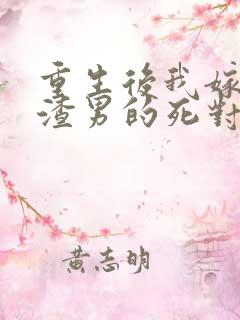 重生後我嫁
渣男的死對
黃志明